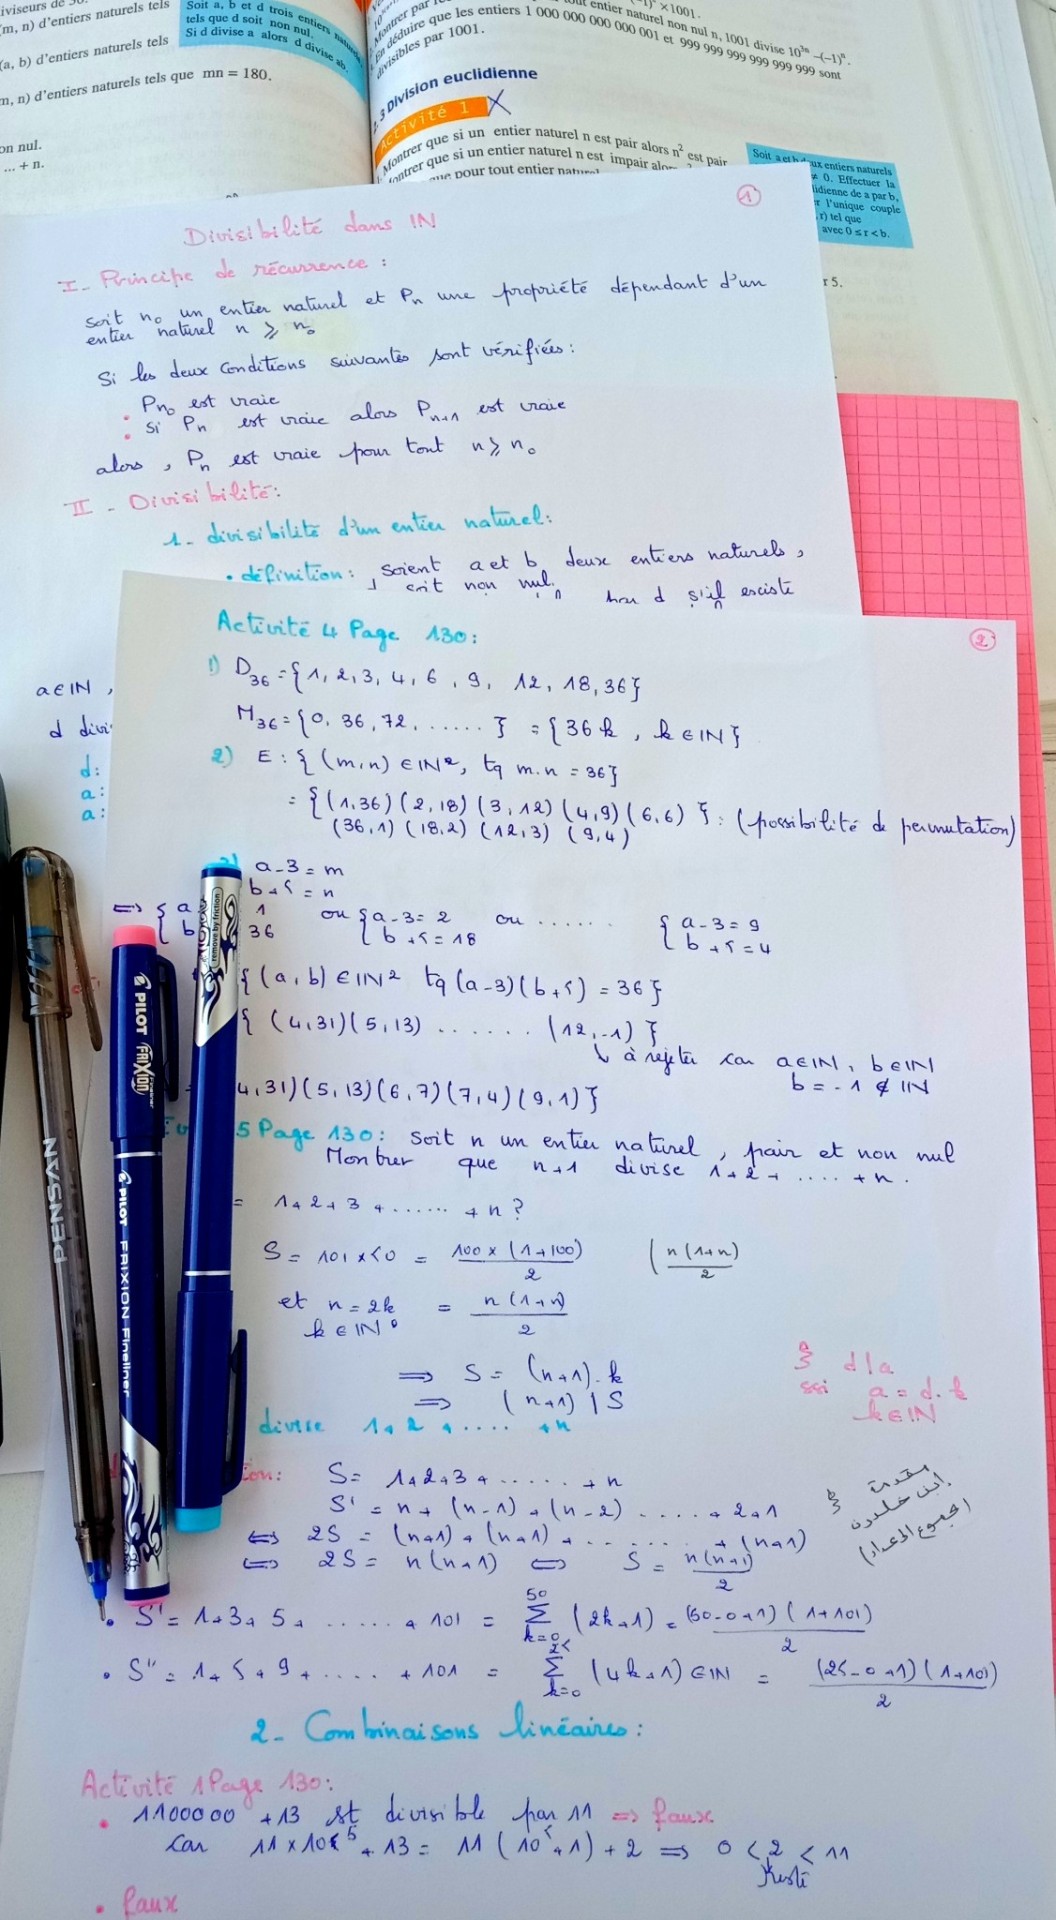 iviseurs de
(m, n) d'entiers naturels tels
(a, b) d'entiers naturels tels
m, n) d'entiers naturels tels que mn = 180.
on nul.
... + n.
Soit a, b et d trois entiers naturels
tels que d soit non nul.
Si d divise a alors d divise ab.
× 1001.
Montrer par
tout entier naturel non nul n, 1001 divise 10³ⁿ −(−1)ⁿ.
En déduire que les entiers 1 000 000 000 000 001 et 999 999 999 999 999 999 sont
divisibles par 1001.
2. 3 Division euclidienne
Activité 1
Montrer que si un entier naturel n est pair alors n² est pair
ontrer que si un entier naturel n est impair alors
que pour tout entier naturel
Soit a et b deux entiers naturels
≠ 0. Effectuer la
lidienne de a par b,
r l'unique couple
, r) tel que
avec 0 ≤ r < b.
r 5.
1
Divisibilité dans IN
I- Principe de récurrence :
soit n₀ un entier naturel et Pn une propriété dépendant d'un
entier naturel n ⩾ n₀
Si les deux conditions suivantes sont vérifiées :
• Pn₀ est vraie
• Si Pn est vraie alors Pn+1 est vraie
alors, Pn est vraie pour tout n ⩾ n₀
II - Divisibilité :
1- divisibilité d'un entier naturel :
• définition : soient a et b deux entiers naturels,
soit non nul. d s'il existe
a ∈ IN,
d divi
d:
a:
a:
2
Activité 4 Page 130 :
1) D₃₆ = {1, 2, 3, 4, 6, 9, 12, 18, 36}
M₃₆ = {0, 36, 72, ......} = {36 k, k ∈ IN}
2) E : { (m,n) ∈ IN², tq m.n = 36}
= { (1,36) (2,18) (3,12) (4,9) (6,6) } : (possibilité de permutation)
(36,1) (18,2) (12,3) (9,4)
a-3 = m
b+5 = n
⇔ { a 1 ou { a-3 = 2 ou ...... { a-3 = 9
b 36 b+5 = 18 b+5 = 4
{ (a,b) ∈ IN² tq (a-3)(b+5) = 36 }
{ (4,31) (5,13) ...... (12,-1) }
↳ à rejeter car a ∈ IN, b ∈ IN
b = -1 ∉ IN
4,31) (5,13) (6,7) (7,4) (9,1) }
5 Page 130 : Soit n un entier naturel, pair et non nul
Montrer que n+1 divise 1+2+ .... +n.
= 1+2+3+ ...... +n ?
S = 101 × 50 = 100 × (1+100) / 2 ( n(1+n) / 2
et n = 2k = n(1+n) / 2
k ∈ IN*
⇒ S = (n+1).k
⇒ (n+1) | S
d | a
ssi a = d.k
k ∈ IN
divise 1+2+ .... +n
ion: S = 1+2+3+ ...... +n
S' = n + (n-1) + (n-2) .... +2+1
⇔ 2S = (n+1) + (n+1) + ...... + (n+1)
⇔ 2S = n(n+1) ⇔ S = n(n+1) / 2
مقدمة
ابن خلدون
(مجموع الأعداد)
• S' = 1+3+5+ ...... +101 = 50 Σ k=0 (2k+1) = (50-0+1)(1+101) / 2
• S'' = 1+5+9+ .... +101 = 25 Σ k=0 (4k+1) ∈ IN = (25-0+1)(1+101) / 2
2- Combinaisons linéaires :
Activité 1 Page 130 :
• 1100000 +13 est divisible par 11 ⇒ faux
car 11×10⁵ + 13 = 11 (10⁵+1) + 2 ⇒ 0 < 2 < 11
Reste
• faux
PENSAN
PILOT FRIXION Fineliner
PILOT FRIXION Fineliner
remove by friction